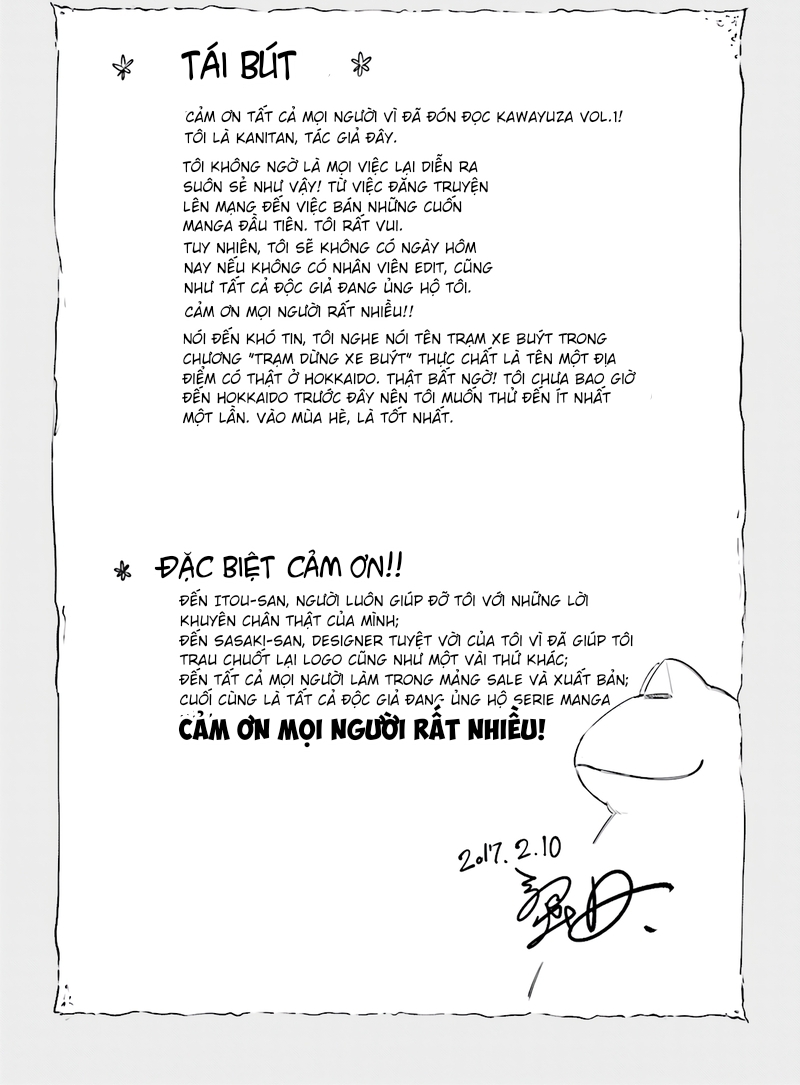 TÁI BÚT
CẢM ƠN TẤT CẢ MỌI NGƯỜI VÌ ĐÃ ĐÓN ĐỌC KAWAYUZA VOL.1!
TÔI LÀ KANITAN, TÁC GIẢ ĐÂY.
TÔI KHÔNG NGỜ LÀ MỌI VIỆC LẠI DIỄN RA
SUÔN SẺ NHƯ VẬY! TỪ VIỆC ĐĂNG TRUYỆN
LÊN MẠNG ĐẾN VIỆC BÁN NHỮNG CUỐN
MANGA ĐẦU TIÊN. TÔI RẤT VUI.
TUY NHIÊN, TÔI SẼ KHÔNG CÓ NGÀY HÔM
NAY NẾU KHÔNG CÓ NHÂN VIÊN EDIT, CŨNG
NHƯ TẤT CẢ ĐỘC GIẢ ĐANG ỦNG HỘ TÔI.
CẢM ƠN MỌI NGƯỜI RẤT NHIỀU!!
NÓI ĐẾN KHÓ TIN, TÔI NGHE NÓI TÊN TRẠM XE BUÝT TRONG
CHƯƠNG "TRẠM DỪNG XE BUÝT" THỰC CHẤT LÀ TÊN MỘT ĐỊA
ĐIỂM CÓ THẬT Ở HOKKAIDO. THẬT BẤT NGỜ! TÔI CHƯA BAO GIỜ
ĐẾN HOKKAIDO TRƯỚC ĐÂY NÊN TÔI MUỐN THỬ ĐẾN ÍT NHẤT
MỘT LẦN. VÀO MÙA HÈ, LÀ TỐT NHẤT.
ĐẶC BIỆT CẢM ƠN!!
ĐẾN ITOU-SAN, NGƯỜI LUÔN GIÚP ĐỠ TÔI VỚI NHỮNG LỜI
KHUYÊN CHÂN THẬT CỦA MÌNH;
ĐẾN SASAKI-SAN, DESIGNER TUYỆT VỜI CỦA TÔI VÌ ĐÃ GIÚP TÔI
TRAU CHUỐT LẠI LOGO CŨNG NHƯ MỘT VÀI THỨ KHÁC;
ĐẾN TẤT CẢ MỌI NGƯỜI LÀM TRONG MẢNG SALE VÀ XUẤT BẢN;
CUỐI CÙNG LÀ TẤT CẢ ĐỘC GIẢ ĐANG ỦNG HỘ SERIE MANGA
CẢM ƠN MỌI NGƯỜI RẤT NHIỀU!
2017.2.10